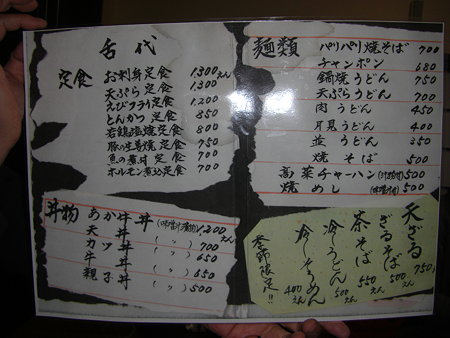 舌代
定食
お刺身定食 1300えん
天ぷら定食 1300
えびフライ定食 1200
とんかつ定食 850
若鶏塩焼定食 800
豚の生姜焼定食 750
魚の煮付定食 700
ホルモン煮込定食 700
丼物
あか牛丼 (味噌汁漬物) 1,200えん
天丼 (〃) 700
カツ丼 (〃) 650
牛丼 (〃) 650
親子丼 500
麺類
パリパリ焼そば 700
チャンポン 680
鍋焼うどん 750
天ぷらうどん 700
肉うどん 450
月見うどん 400
並うどん 350
焼そば 500
高菜チャーハン (汁物付) 500
焼めし (味噌汁付) 500
天ざる 750
ざるそば 500えん
茶そば 550えん
冷しうどん 500えん
冷しそうめん 400えん
季節限定!!